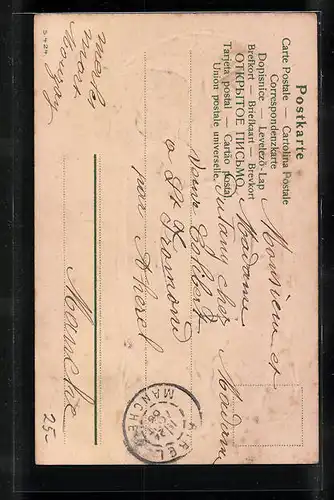 Postkarte
Carte Postale — Cartolina Postale
Correspondenzkarte
Dopisnice — Levelező-Lap
Brefkort — Briefkaart — Brevkort
ОТКРЫТОЕ ПИСЬМО
Tarjeta postal — Cartão postal
Unión postale universelle.
S.424
Monsieur et
Madame
chez Madame
veuve
a St Fromond
par Airel
Manche
25-
AIREL
MANCHE